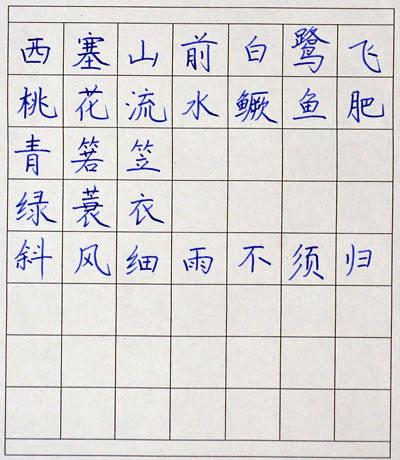 西塞山前白鹭飞
桃花流水鳜鱼肥
青箬笠
绿蓑衣
斜风细雨不须归